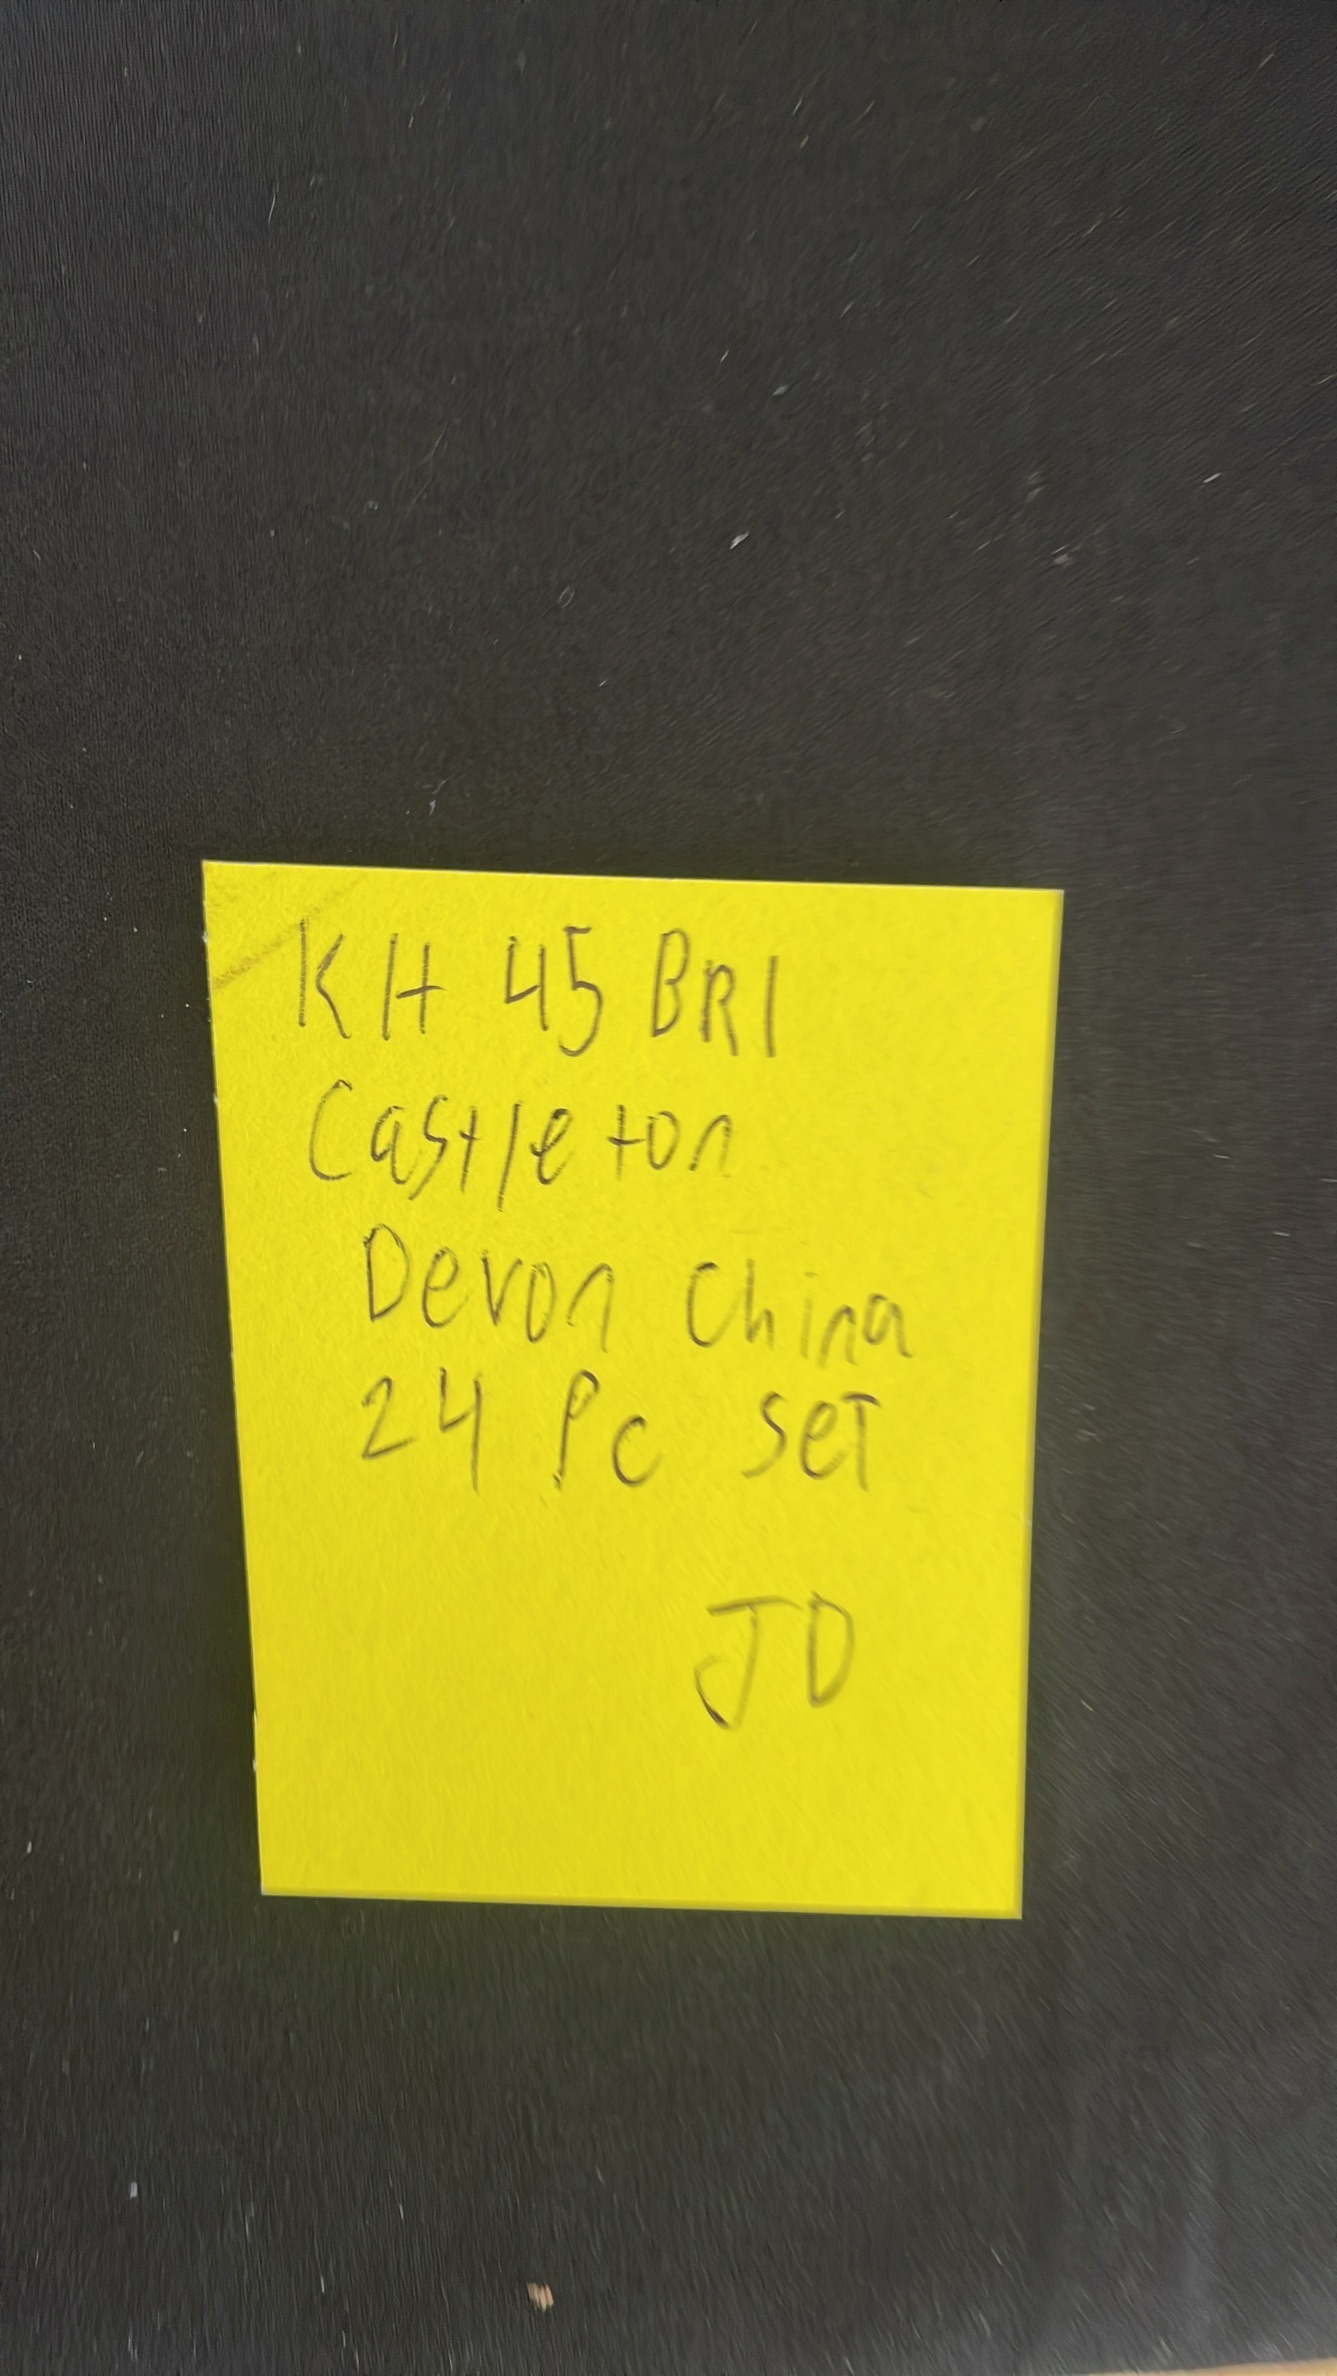 KH 45 BRI
Castleton
Devon China
24 Pc SeT
JD